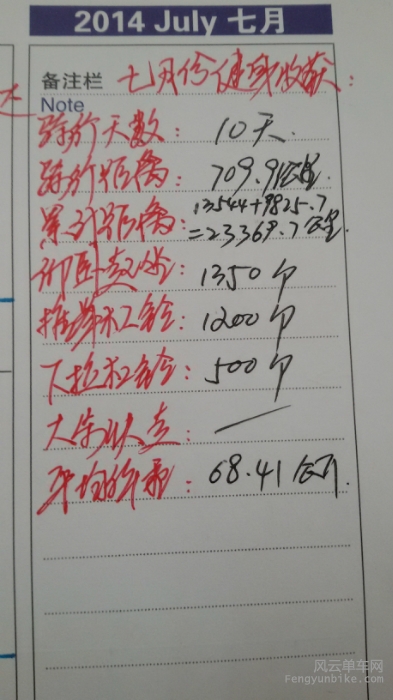 2014 July 七月
备注栏 七月份健身收获:
Note
骑行天数: 10天.
骑行距离: 709.91公里
累计距离: 13544+9825.7
=23369.7公里.
仰卧起坐: 1350个
推举杠铃: 1200个
下拉杠铃: 500个
大
平均体重: 68.41公斤.
风云单车网
Fengyunbike.com